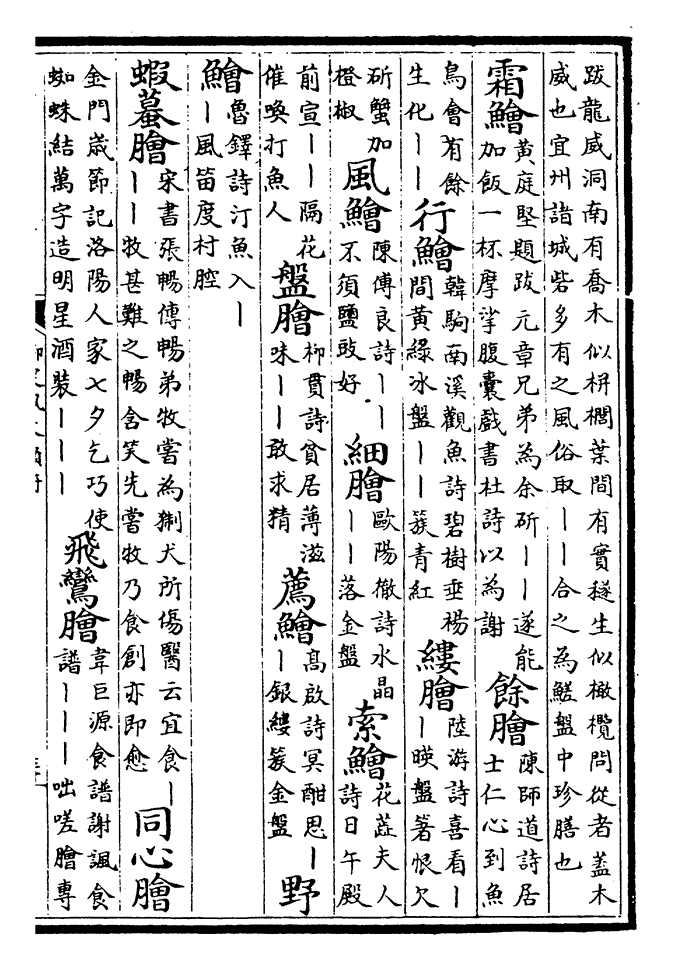 跋龍威洞南有喬木似栟櫚葉間有實穟生似橄欖問從者蓋木
威也宜州諸城砦多有之風俗取丨丨合之為鮺盤中珍膳也
霜鱠
黃庭堅題跋元章兄弟為余斫丨丨遂能
加飯一杯摩挲腹囊戲書杜詩以為謝
餘膾
陳師道詩居
士仁心到魚
鳥會有餘
生化丨丨
行鱠
韓駒南溪觀魚詩碧樹垂楊
間黃綠冰盤丨丨簇青紅
縷膾
陸游詩喜看丨
丨暎盤箸恨欠
斫蟹加
橙椒
風鱠
陳傅良詩丨丨
不須鹽豉好
細膾
歐陽徹詩水晶
丨丨落金盤
索鱠
花蕋夫人
詩日午殿
前宣丨丨隔花
催喚打魚人
盤膾
柳貫詩貧居薄滋
味丨丨敢求精
薦鱠
高啟詩冥酣思丨
丨銀縷簇金盤
野
鱠
魯鐸詩汀魚入丨
丨風笛度村腔
蝦蟇膾
宋書張暢傳暢弟牧嘗為猘犬所傷醫云宜食丨
丨丨牧甚難之暢含笑先嘗牧乃食創亦即愈
同心膾
金門歲節記洛陽人家七夕乞巧使
蜘蛛結萬字造明星酒裝丨丨丨
飛鸞膾
韋巨源食譜謝諷食
譜丨丨丨咄嗟膾專